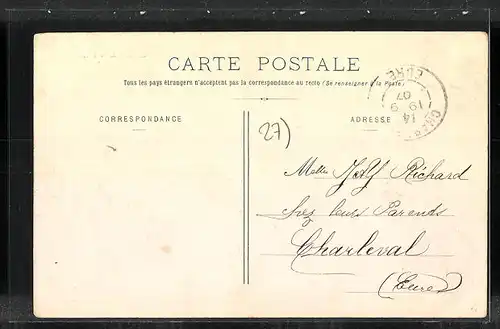 CARTE POSTALE
Tous les pays étrangers n'acceptent pas la correspondance au recto (Se renseigner à la Poste)
CORRESPONDANCE
ADRESSE
EURE
14
19 9
07
27)
Melles J & Y Richard
chez leurs Parents
Charleval
(Eure)